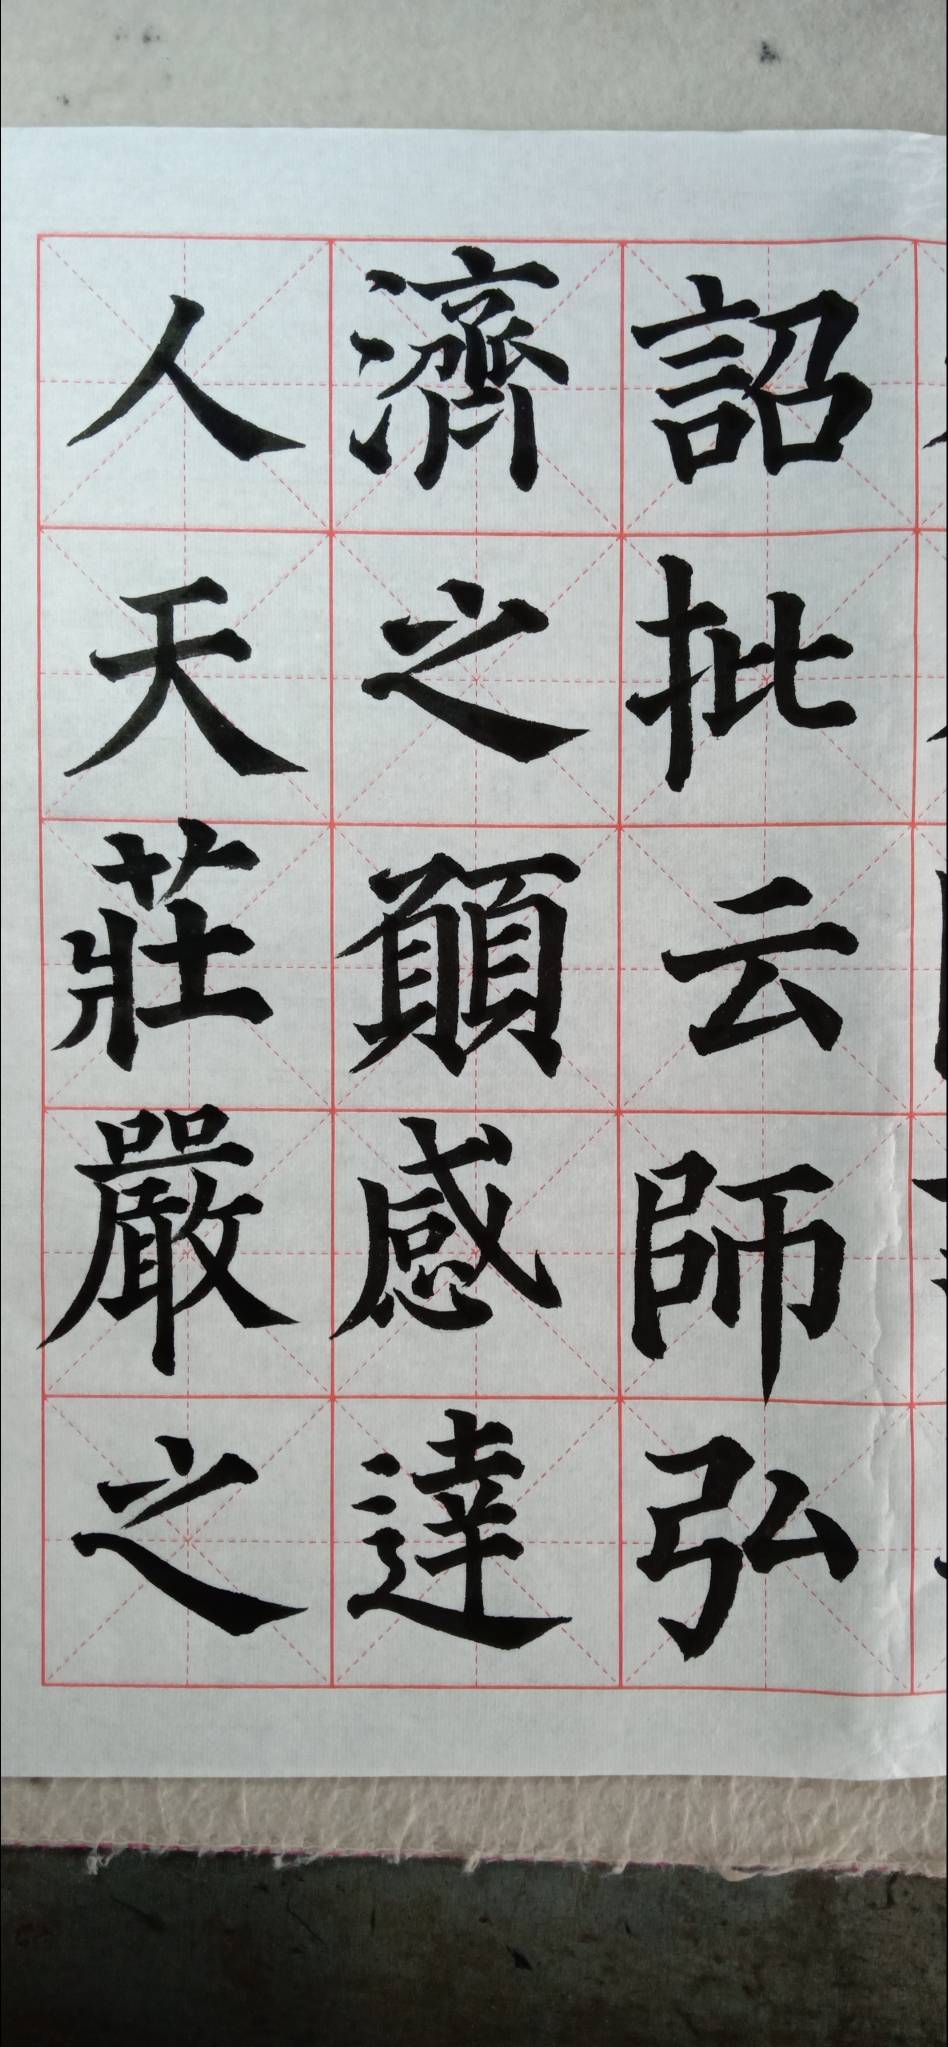 詔批云師弘
濟之願感達
人天莊嚴之